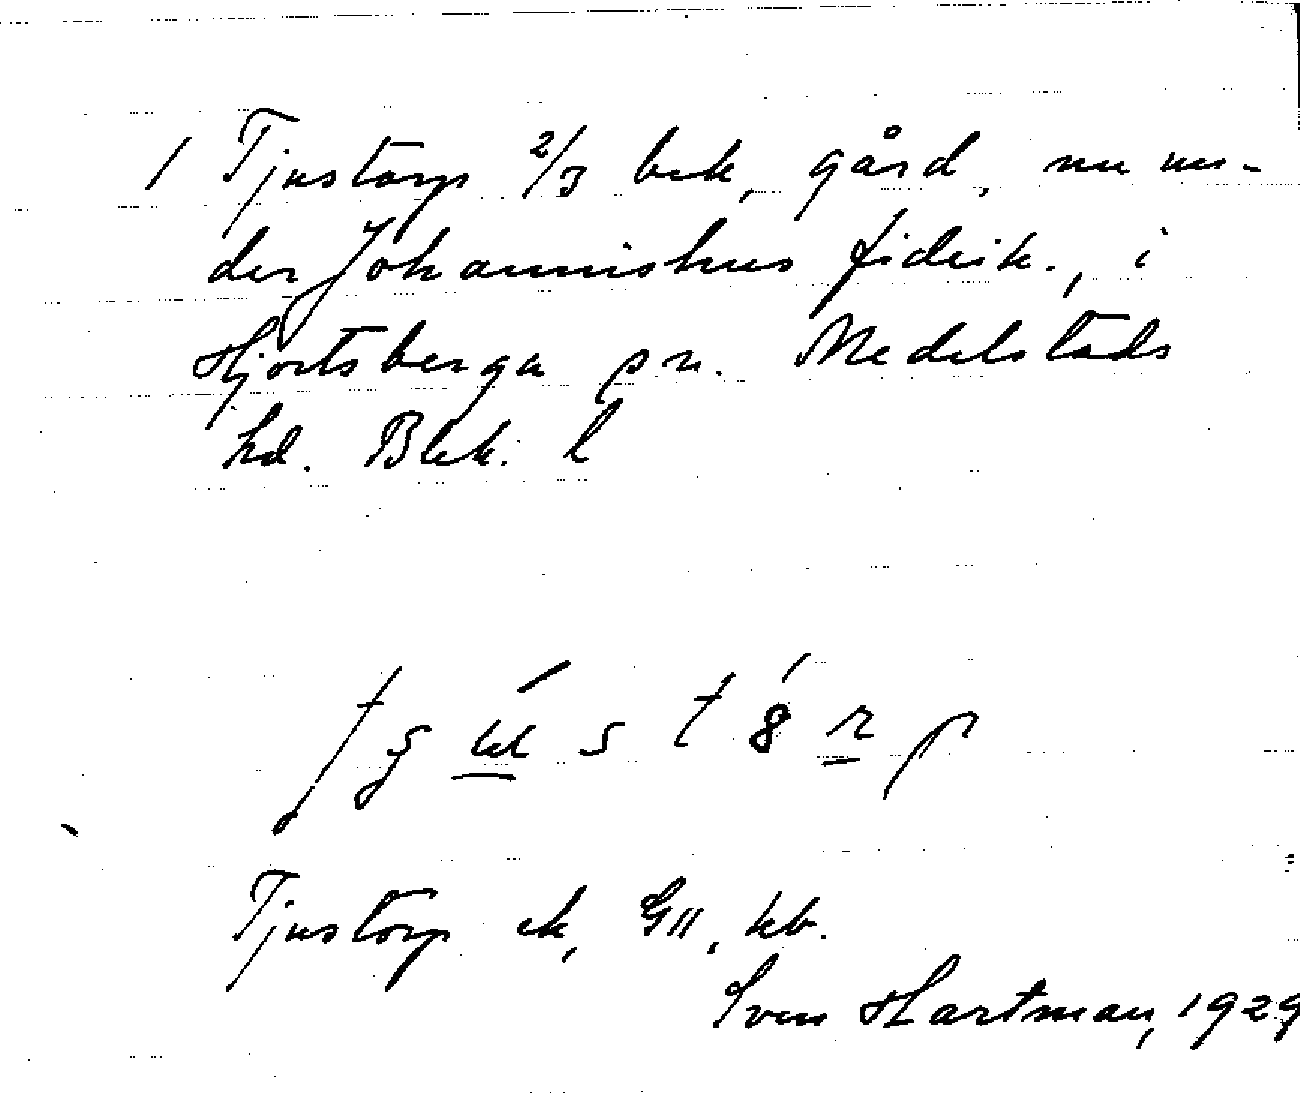 1 Tjustorp 2/3 bek, gård, nu un-
der Johannishus fideik., i
Hjortsberga sn. Medelstads
hd. Blek. l
Tjustorp ek, GII, kb.
Sven Hartman, 1929